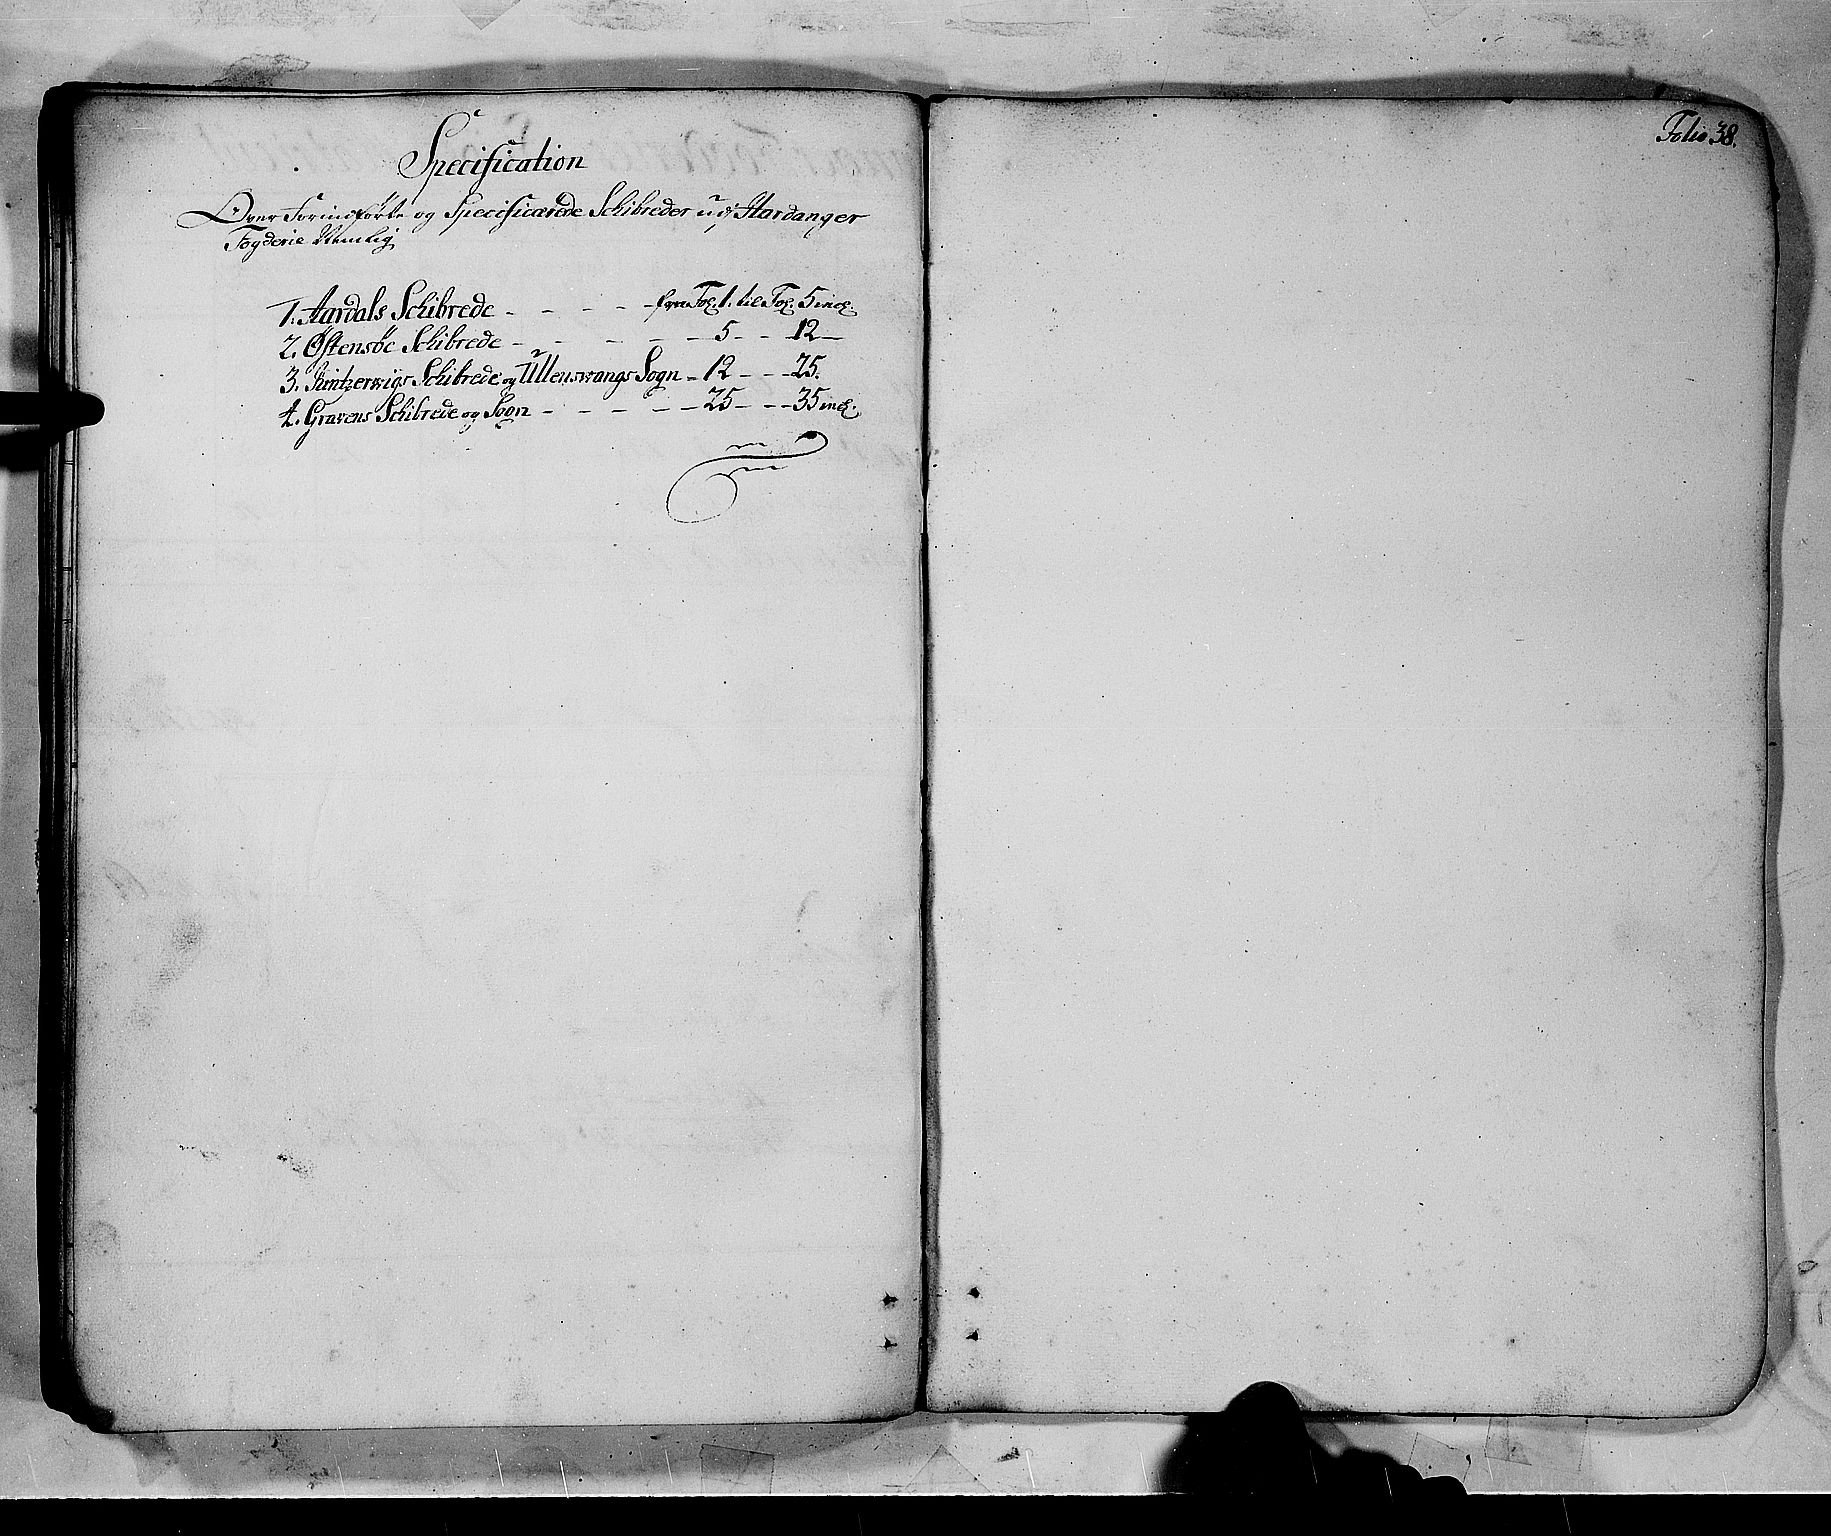 Specification
Over Forindførte og Specificærede Schibreder udj Hardanger
Fogderie Nemlig
1. Aardals Schibrede - - - - fra Fol. 1. til Fol. 5 incl.
2. Østensöe Schibrede - - - - - 5 - - 12 -
3. Kintzerwigs Schibrede og Ullenswangs Sogn - 12 - - - 25.
4. Gravens Schibrede og Sogn - - - - - 25 - - - 35 incl.
Folio 38.